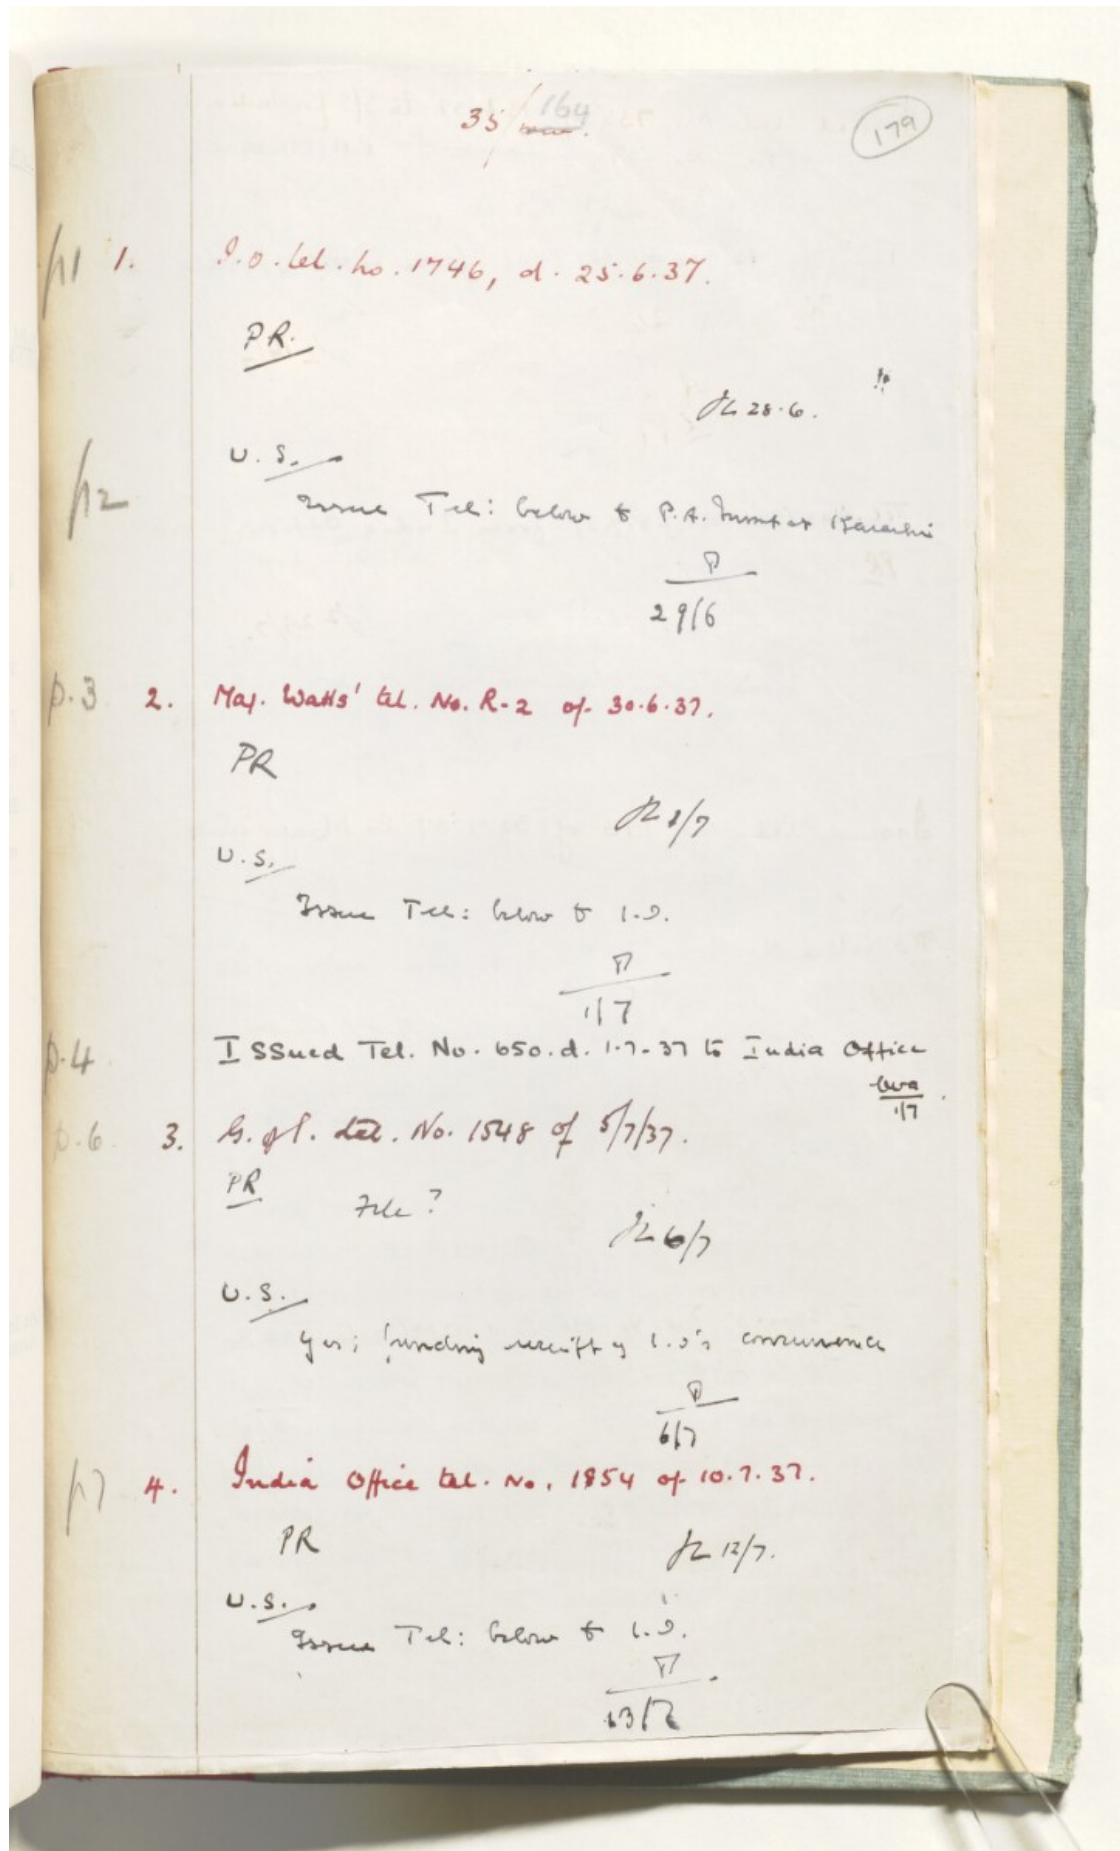 35/164
179
p1 1. I.O. tel. no. 1746, d. 25.6.37.
PR.
28.6.
U.S.
p2 Issue Tel: below to P.A. Karachi
29/6
p.3 2. Maj. Watts' tel. No. R-2 of 30.6.37.
PR
1/7
U.S.
Issue Tel: below to I.O.
1/7
p.4 Issued Tel. No. 650.d. 1.7.37 to India Office
1/7
p.6 3. G. of I. tel. No. 1548 of 5/7/37.
PR File?
6/7
U.S.
Yes; pending receipt of I.O's concurrence
6/7
p7 4. India Office tel. No. 1854 of 10.7.37.
PR 12/7.
U.S.
Issue Tel: below to I.O.
13/7